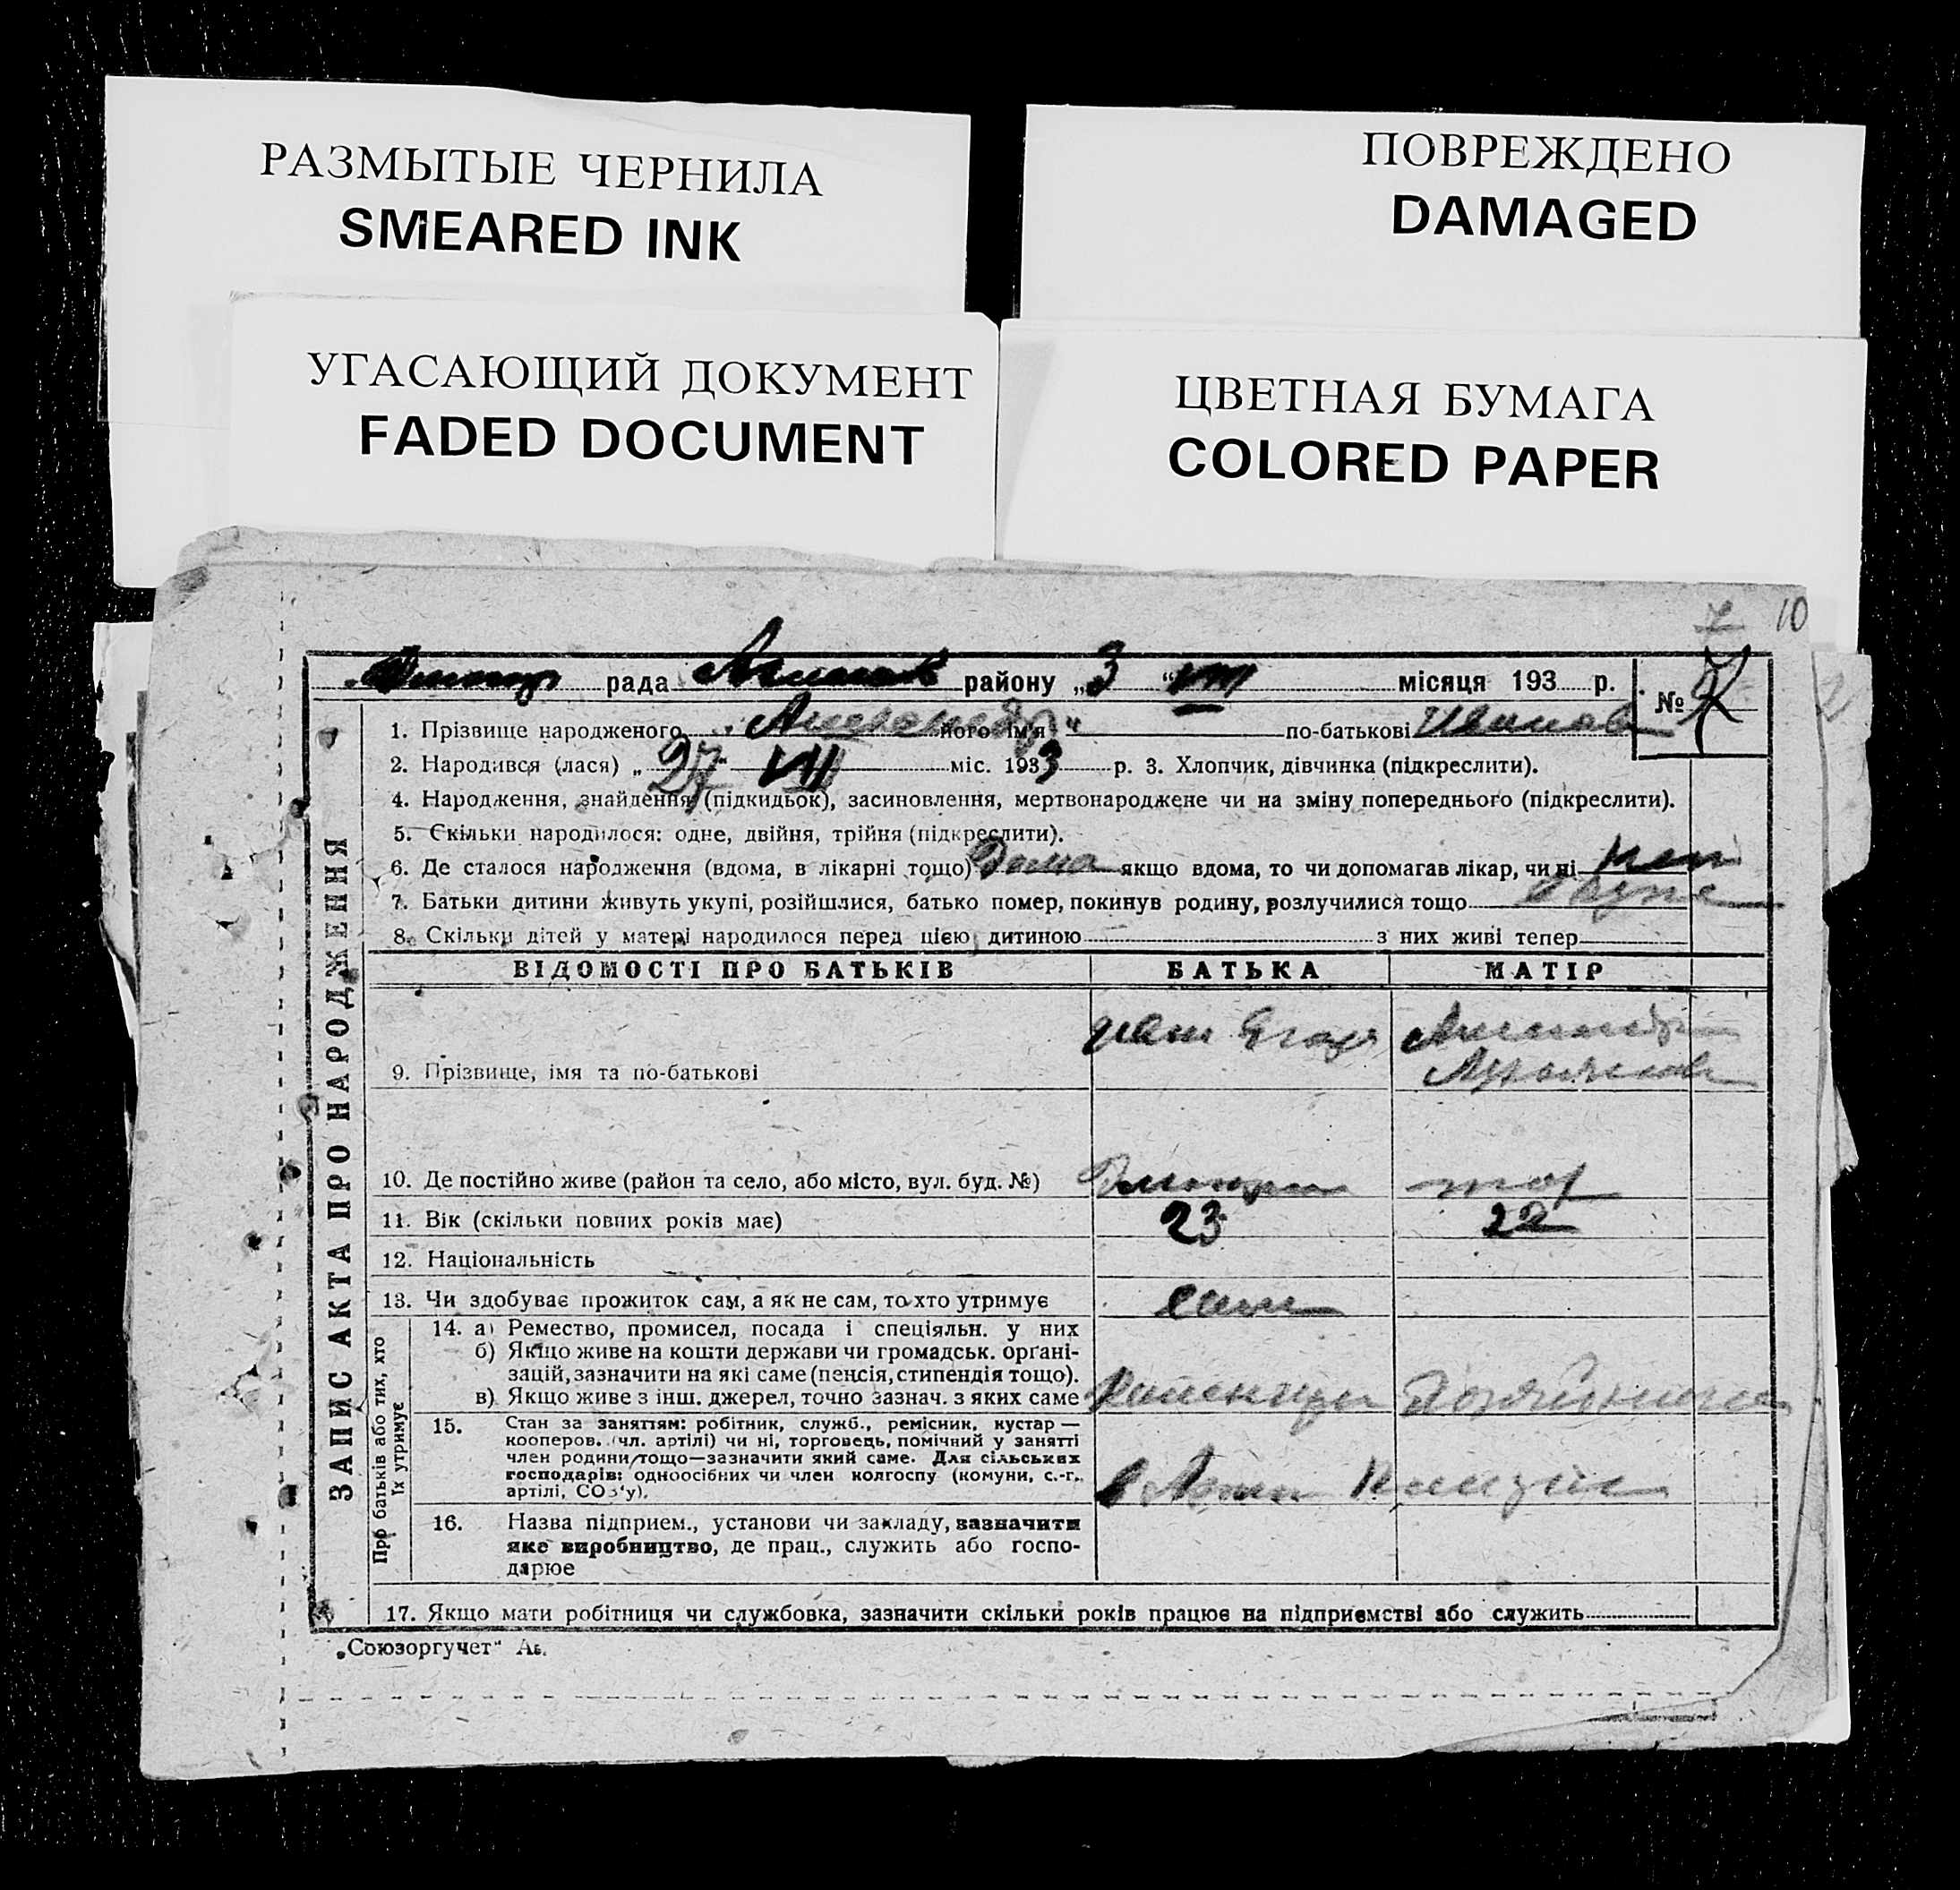 РАЗМЫТЫЕ ЧЕРНИЛА
SMEARED INK
ПОВРЕЖДЕНО
DAMAGED
УГАСАЮЩИЙ ДОКУМЕНТ
FADED DOCUMENT
ЦВЕТНАЯ БУМАГА
COLORED PAPER
7 10
рада району „3 “ VIII місяця 193 р. №
ЗАПИС АКТА ПРО НАРОДЖЕННЯ
1. Прізвище народженого його ім'я по-батькові Иванов
2. Народився (лася) „ 27 VII міс. 1933 р. 3. Хлопчик, дівчинка (підкреслити).
4. Народження, знайдення (підкидьок), засиновлення, мертвонароджене чи на зміну попереднього (підкреслити).
5. Скільки народилося: одне, двійня, трійня (підкреслити).
6. Де сталося народження (вдома, в лікарні тощо) Дома якщо вдома, то чи допомагав лікар, чи ні нет
7. Батьки дитини живуть укупі, розійшлися, батько помер, покинув родину, розлучилися тощо
8. Скільки дітей у матері народилося перед цією дитиною з них живі тепер
ВІДОМОСТІ ПРО БАТЬКІВ БАТЬКА МАТІР
9. Прізвище, імя та по-батькові
10. Де постійно живе (район та село, або місто, вул. буд. №)
11. Вік (скільки повних років має) 23 22
12. Національність
13. Чи здобуває прожиток сам, а як не сам, то хто утримує сам
Про батьків або тих, хто їх утримує
14. а) Ремество, промисел, посада і спеціяльн. у них
б) Якщо живе на кошти держави чи громадськ. органі-
зацій, зазначити на які саме (пенсія, стипендія тощо).
в) Якщо живе з інш. джерел, точно зазнач. з яких саме
15. Стан за заняттям: робітник, служб., ремісник, кустар —
кооперов. (чл. артілі) чи ні, торговець, помічний у занятті
член родини тощо—зазначити який саме. Для сільських
господарів: одноосібних чи член колгоспу (комуни, с.-г.
артілі, СОЗ'у).
16. Назва підприєм., установи чи закладу, зазначити
яке виробництво, де прац., служить або госпо-
дарює
17. Якщо мати робітниця чи службовка, зазначити скільки років працює на підприємстві або служить
„Союзоргучет“